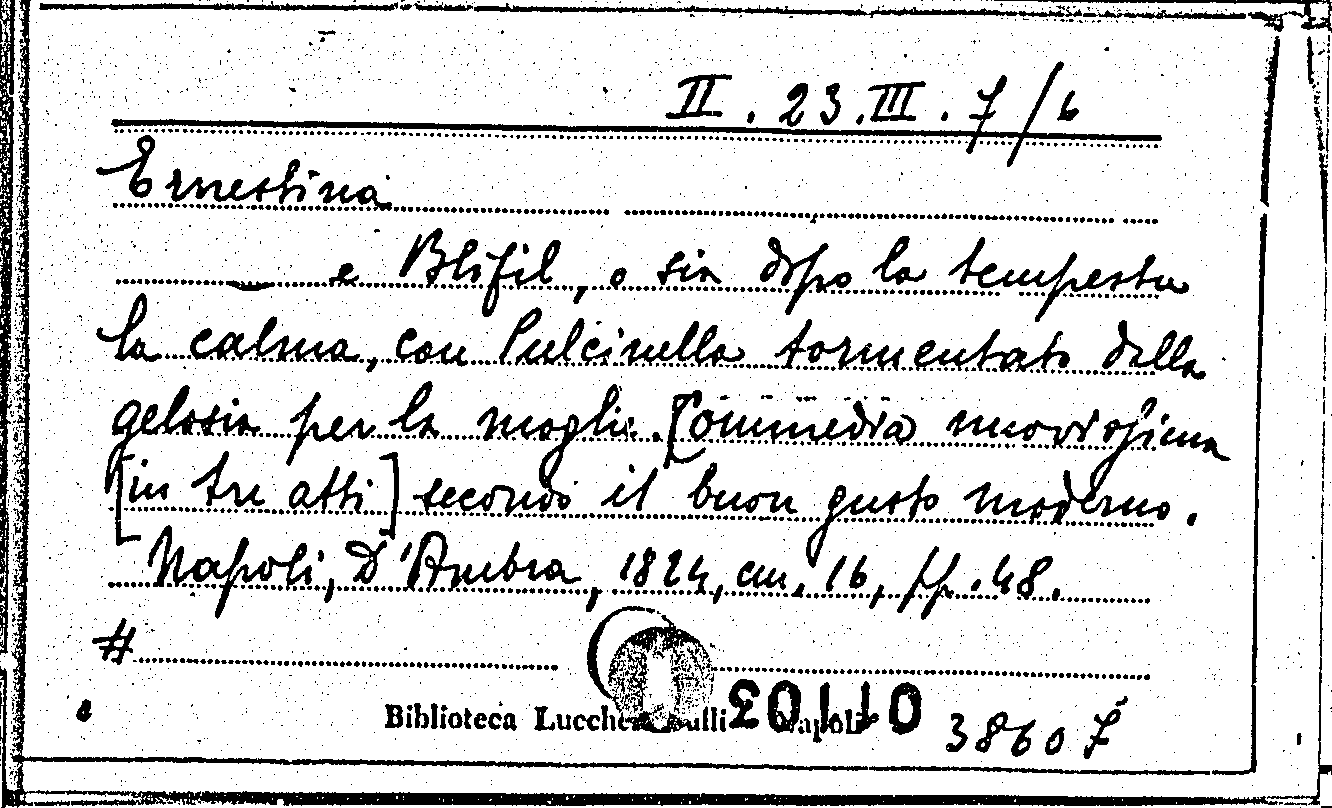 II. 23. III. 7/6
Ernestina
— e Blifil, o sia dopo la tempesta
la calma, con Pulcinella tormentato dalla
gelosia per la moglie. [Commedia nuovissima
[in tre atti] secondo il buon gusto moderno.
Napoli, D'Ambra, 1824, cm. 16, pp. 48.
#
Biblioteca Lucchesi Palli Napoli
38607